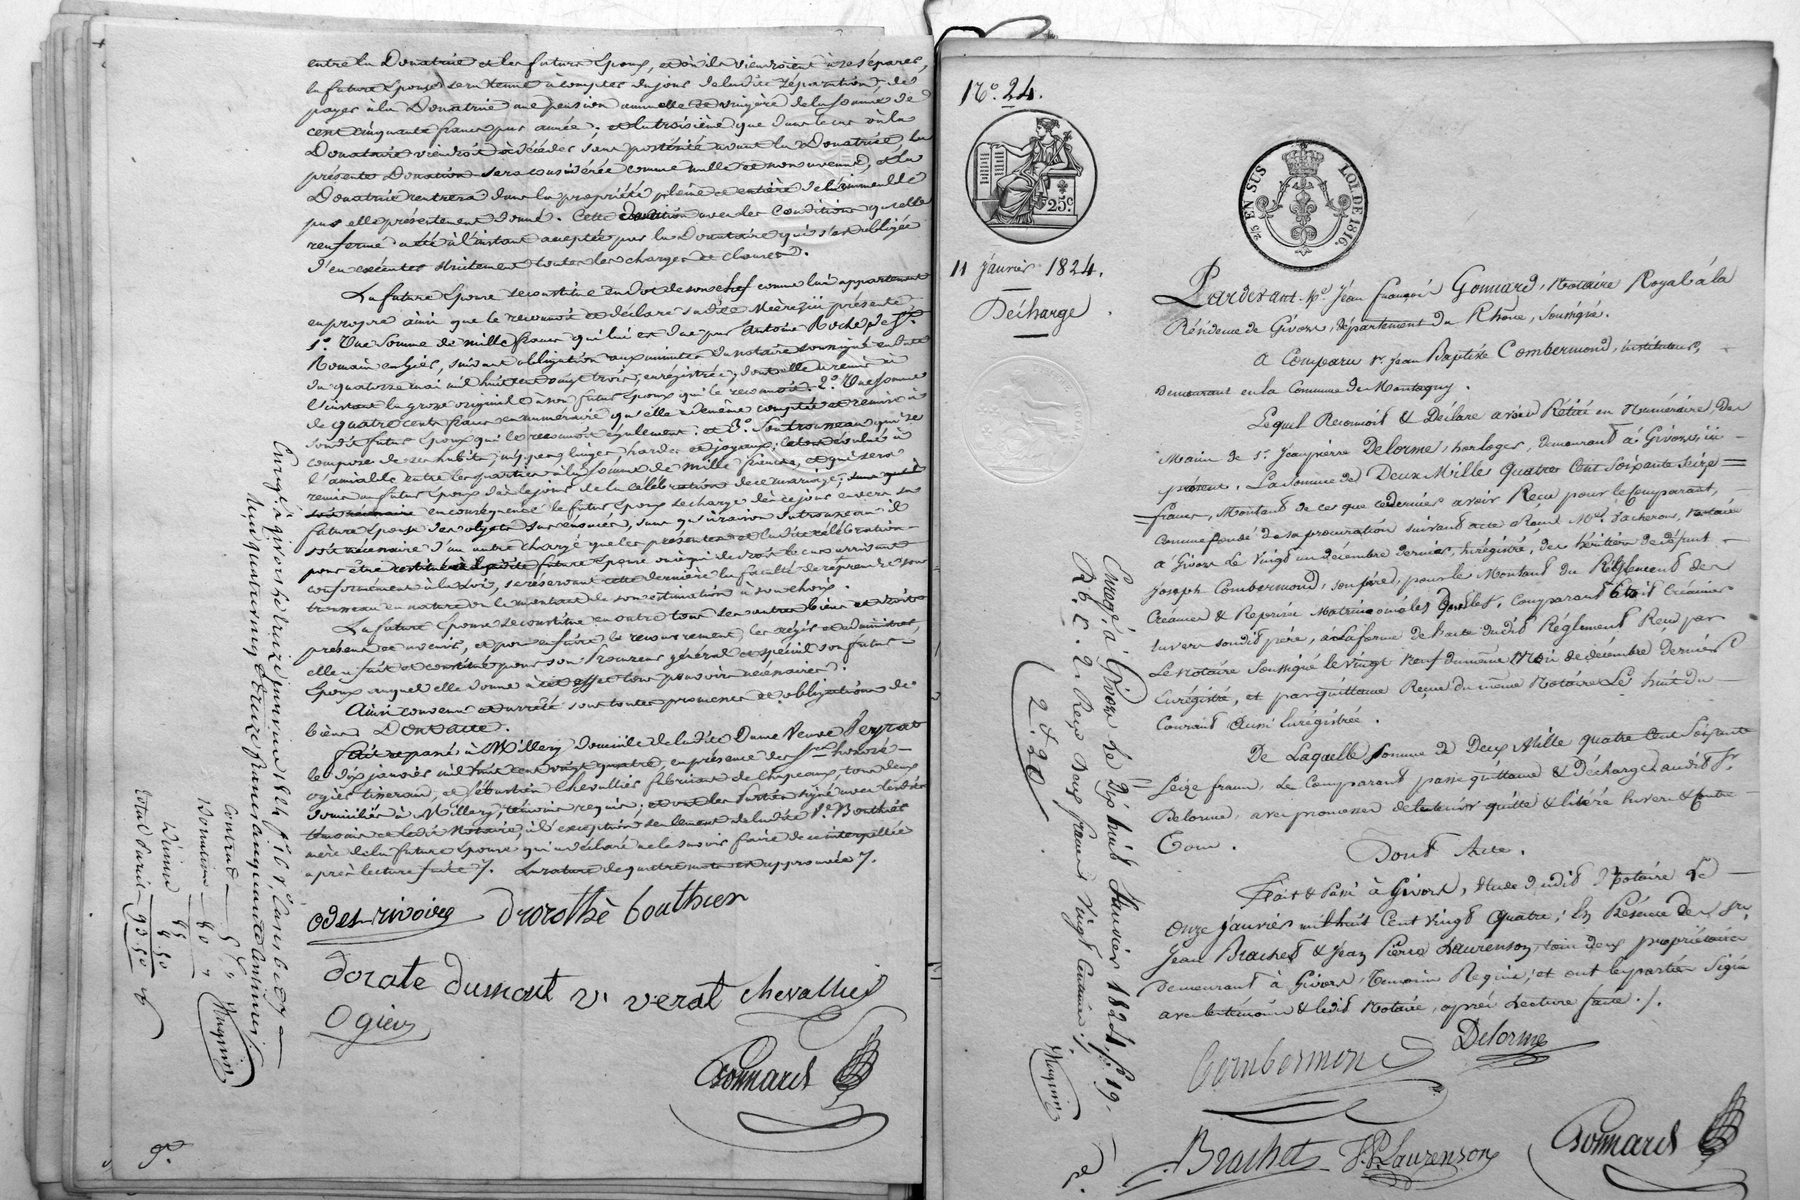 entre la Donatrice et les futurs Epoux, et où ils viendroient à se séparer,
la future Epouse sera tenue à compter du jour de ladite séparation, de
payer à la Donatrice une pension annuelle et viagère de la somme de
cent cinquante francs par année; et la troisième que dans le cas où la
Donataire viendroit à décéder sans postérité avant la Donatrice, la
présente Donation sera considérée comme nulle et non avenue, et la
Donatrice rentrera dans la propriété pleine et entière de l'immeuble
par elle présentement donné. Cette donation avec les conditions qu'elle
renferme a été à l'instant acceptée par la Donataire qui s'est obligée
d'en exécuter strictement toutes les charges et clauses.
La future Epouse se constitue en Dot de son chef comme lui appartenant
en propre ainsi que le reconnoit et déclare sadite Mère ici présente
1o. Une somme de mille francs qui lui est due par Antoine Roche de St.
Romain en Gier, suivant obligation aux minutes du notaire soussigné en date
du quatorze mai mil huit cent vingt trois, enregistrée, dont elle a remis à
l'instant la grosse original à son futur Epoux qui le reconnoit. 2o. Une somme
de quatre cents francs en numéraire qu'elle a de même comptée et remise à
sondit futur Epoux qui le reconnoit également. et 3o. Son trousseau qui se
compose de ses habits, linges, hardes et joyaux, le tout évalué à
l'amiable entre les parties à la somme de mille francs, et qui sera
remis au futur Epoux dès le jour de la célébration de ce mariage,
en conséquence le futur Epoux se charge dès ce jour envers sa
future Epouse desdits objets sus énoncés, sans qu'à raison du trousseau il
soit nécessaire d'un autre chargé que les présentes et ladite célébration
pour être restitué à ladite future Epouse ou à qui de droit le cas arrivant
conformément à la loi, se réservant cette dernière la faculté de reprendre son
trousseau en nature ou le montant de son estimation à son choix.
La future Epouse se constitue en outre tous ses autres biens et droits
présens et à venir, et pour en faire le recouvrement, les régir et administrer,
elle a fait et constitué pour son Procureur général et spécial son futur
Epoux auquel elle donne à cet effet tous pouvoirs nécessaires.
Ainsi convenu et arrêté sous toutes promesses et obligations de
biens Dont acte.
Fait et passé à Millery, domicile de ladite Dame Veuve Peyrat
le dix janvier mil huit cent vingt quatre, en présence des Srs. honoré
ogier tisseran, et Sébastien Chevallier fabricant de chapeaux, tous deux
domiciliés à Millery, témoins requis; et ont les Parties signé avec les dits
témoins et ledit Notaire, à l'exception seulement de ladite Ve. Bouthier
mère de la future Epouse qui a déclaré ne le savoir faire de ce interpellée
après lecture faite ./. La rature de quatre mots est approuvée ./.
odet-rivoire Dorothé bouthier
dorate dumont Ve verat chevallier
Ogier
Gonnard
Enregé. à Givors le treize janvier 1824 fo. 16
Reçu quatre vingt treize francs cinquante centimes.
Contrat — 5 "
Donation — 80 "
Dixième 8 50
Total Droit — 93 50
Magnin
No. 24.
25c.
25 EN SUS LOI DE 1816.
11 janvier 1824.
Décharge
Pardevant Me. Jean François Gonnard, Notaire Royal à la
Résidence de Givors, département du Rhône, Soussigné.
A Comparu Sr. Jean Baptiste Combermond, instituteur,
Demeurant en la Commune de Montagny.
Lequel Reconnoit & Déclare avoir Retiré en Numéraire Des
Mains de Sr. Jean pierre Delorme, horloger, demeurant à Givors, ici
présent. La Somme de Deux Mille Quatre Cent Soixante Seize
francs, Montant de ce que ce dernier avoir Reçu pour le Comparant,
Comme fondé de sa procuration suivant acte Reçu Me. Facheron, Notaire
à Givors Le Vingt un décembre dernier, Enrégistré, des héritiers de défunt
Joseph Combermond, son père, pour le Montant du Réglement des
Créances & Reprises Matrimoniales Desquelles Comparant Etoit Créancier
Envers sondit père, à la forme de l'acte dudit Réglement Reçu par
Le Notaire Soussigné le vingt Neuf du même Mois de décembre Dernier
Enrégistré, et par quittance Reçue du même Notaire Le huit du
Courant Aussi Enregistrée.
De Laquelle Somme de Deux Mille quatre Cent Soixante
Seize francs, Le Comparant passe quittance & Décharge audit Sr.
Delorme, avec promesse de le tenir quitte & libéré Envers & Contre
Tous.
Dont Acte.
Fait & Passé à Givors, Etude dudit Notaire Le
Onze Janvier mil huit Cent Vingt Quatre; En Présence des Srs.
Jean Brachet & Jean Pierre Laurenson, tous deux propriétaires
Demeurant à Givors, Témoins Requis; et ont les parties Signé
avec les témoins & ledit Notaire, après Lecture faite ./.
Combermond Delorme
Brachet J.P. Laurenson Gonnard
Enregé. à Givors le Dix huit Janvier 1824, fo. 19.
Ro. Cs. 2. Reçu Deux francs Vingt Centimes.
2f. 20
Magnin